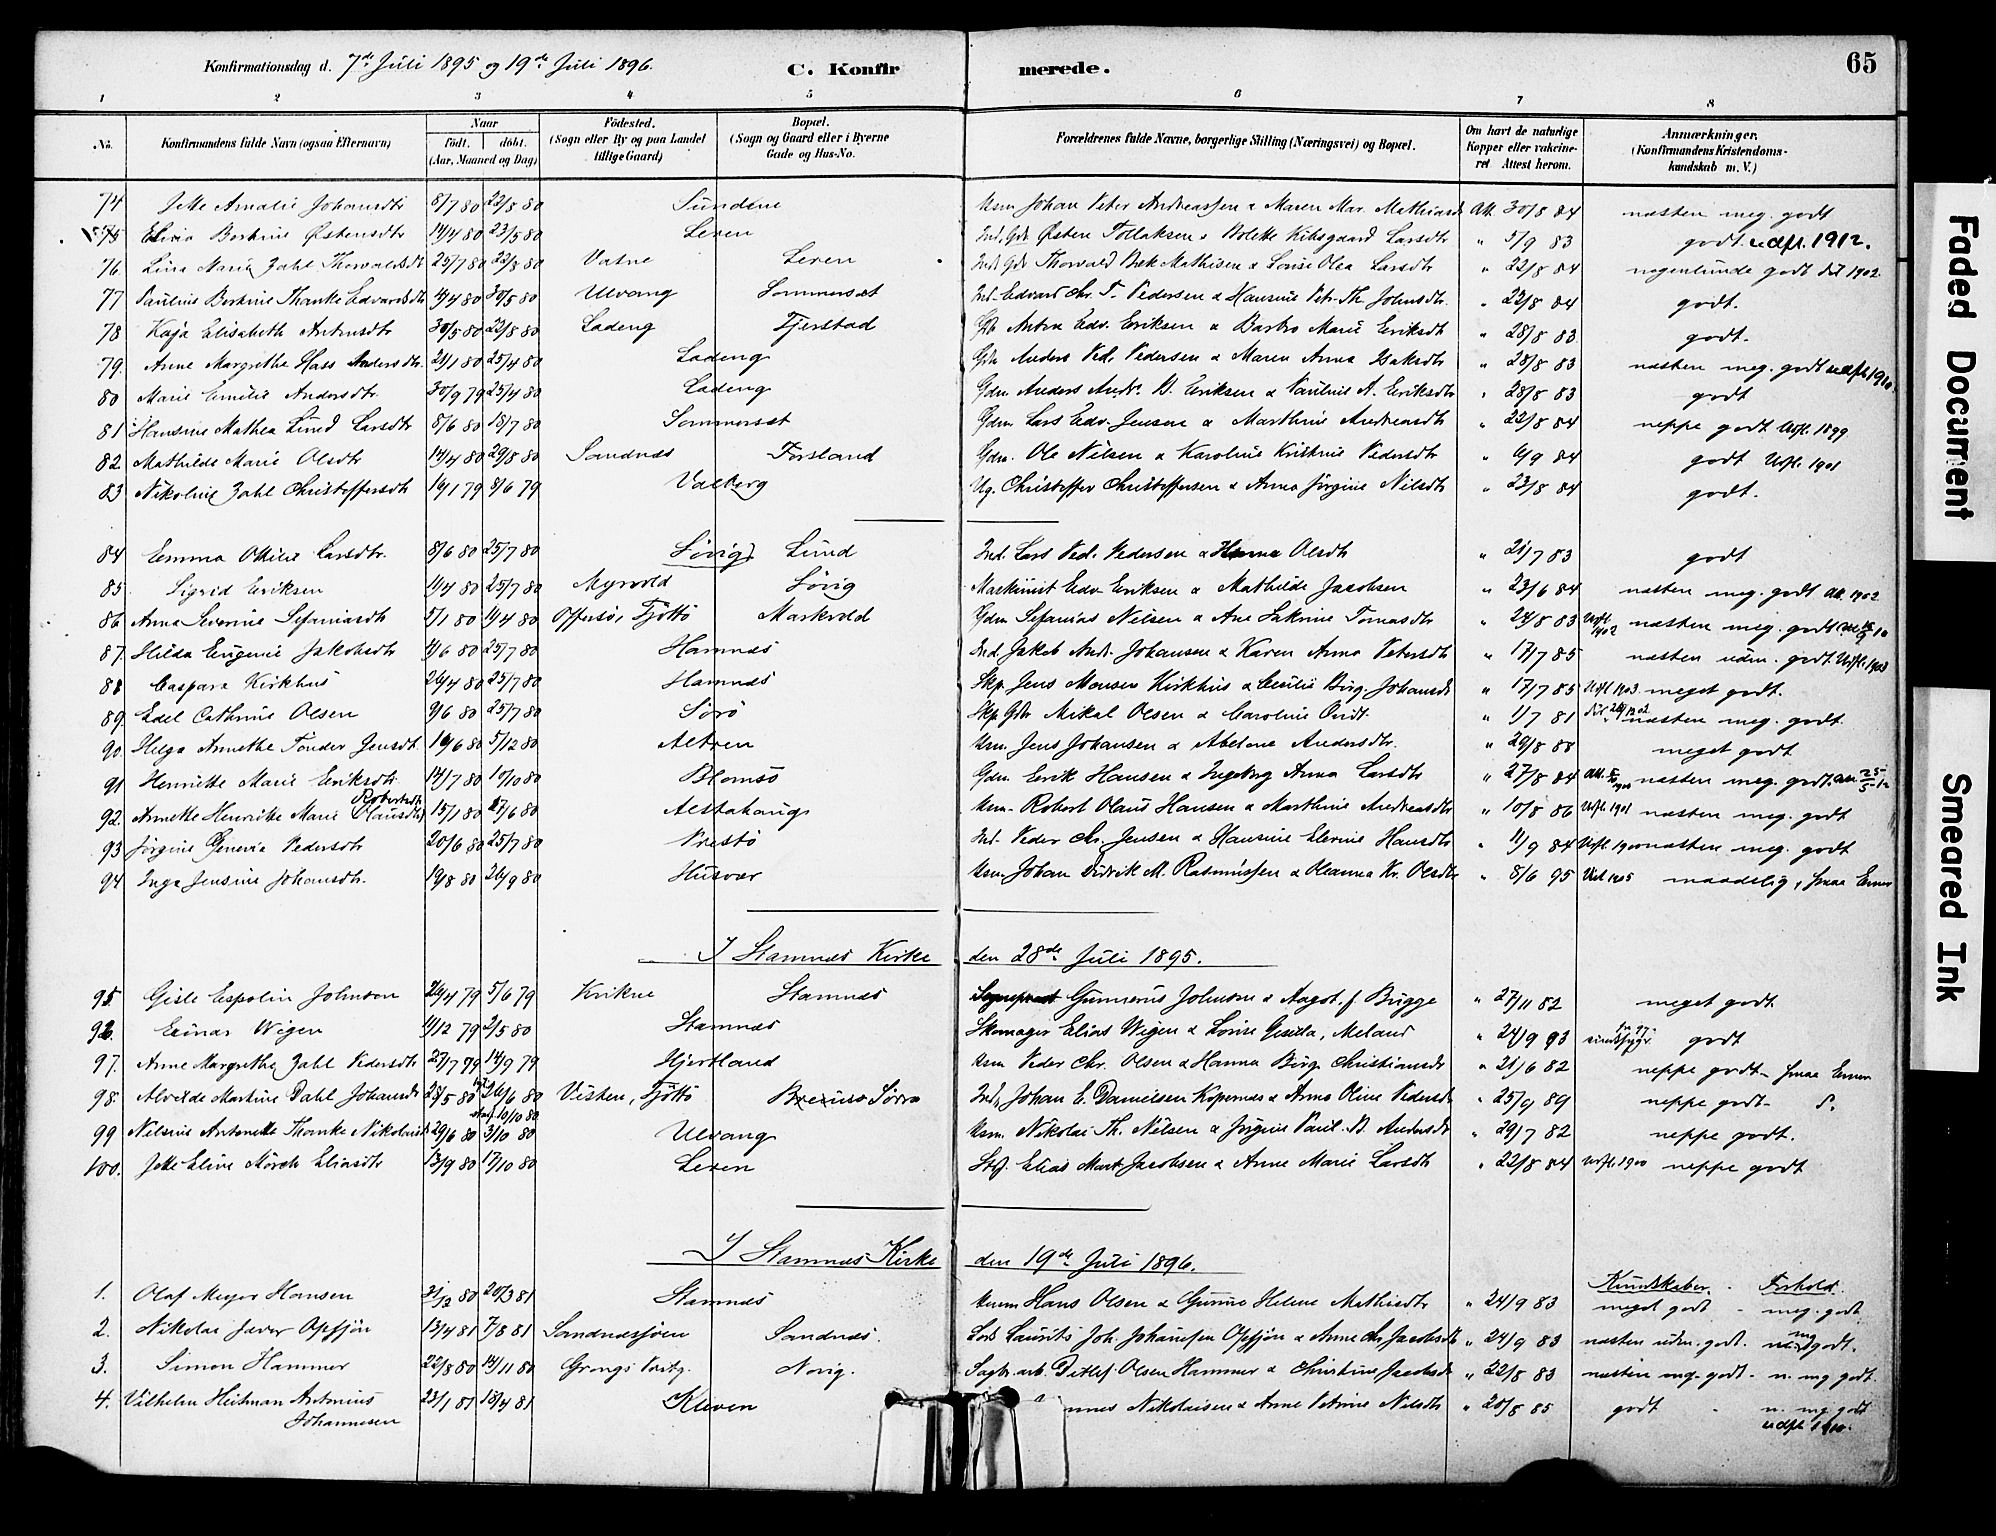 Konfirmationsdag d. 7de Juli 1895 og 19de Juli 1896. C. Konfirmerede. 65
1 2 3 4 5 6 7 8
No. Konfirmandens fulde Navn (ogsaa Efternavn) Naar födt. döbt. (Aar, Maaned og Dag) Födested. (Sogn eller By og paa Landet tillige Gaard) Bopæl. (Sogn og Gaard eller i Byerne Gade og Hus-No. Forældrenes fulde Navne, borgerlige Stilling (Næringsvei) og Bopæl. Om havt de naturlige Kopper eller vakcineret Attest herom. Anmærkninger. (Konfirmandens Kristendomskundskab m. V.)
74 Jette Amalie Johansdtr 8/7 80 22/8 80 Sundene Johan Peter Andreassen & Maren Mar. Mathiasd Att. 30/8 84 næsten meg. godt
75 Elisa Bortine Østensdtr 14/4 80 23/5 80 Leren Ind. Gdr Østen Tollaksen & Bolette Kibsgaard Larsdtr " 5/9 83 godt. udfl. 1912.
76 Lina Marie Zahl Thorvaldsdt 25/7 80 22/8 80 Vatne Leren Ind. Gdr Thorvald Bek Mathisen & Lovise Olea Larsdtr " 22/8 84 nogenlunde godt 1902
77 Pauline Bertine Thonke Edvardsdtr 14/4 80 30/5 80 Ulvang Sommerset Ind. Edvard Chr. T. Pedersen & Hansine Petr. Th. Johnsdtr. " 22/8 84 godt.
78 Kaja Elisabeth Antonsdtr 30/5 80 22/8 80 Ladeng Tjerstad Anton Edv. Eriksen & Barbro Marie Eriksdtr " 28/8 83 godt.
79. Anne Margrethe Hass Andersdtr. 21/1 80 25/4 80 Ladeng Gdr Anders Ped. Pedersen & Maren Anna Isaksdtr " 28/8 83 næsten meg. godt udfl. 1910.
80 Marie Emilie Andersdtr. 30/9 79 25/4 80 Ladeng Gdm Anders Andr. B. Eriksen & Pauline A. Eriksdtr " 28/8 83 godt
81 Hansine Mathea Lund Larsdtr 8/6 80 18/7 80 Sommerset Gdm. Lars Edv. Jensen & Marthine Andreasdtr " 22/8 84 neppe godt Udfl. 1899
82 Mathilde Marie Olsdtr 14/4 80 29/8 80 Sandnæs Forsland Gdm. Ole Nilsen & Karoline Kristine Pedersdtr " 6/9 84 godt Udfl. 1901
83 Nikoline Zahl Christoffersdtr 19/1 79 8/6 79 Valberg Ug. Christoffer Christoffersen & Anna Jörgine Nilsdtr " 23/8 84 godt.
84 Emma Otilie Larsdtr. 8/6 80 25/7 80 Søvig Lund Ind. Lars Ped. Pedersen & Hanna Olsdtr " 21/7 83 godt
85 Sigrid Eriksen 11/4 80 25/7 80 Myrvold Søvig Maskinist Edv. Eriksen & Mathilde Jacobsen " 23/6 84 næsten meg. godt Att. 1902
86 Anna Severine Sefaniasdtr 5/1 80 11/4 80 Offersö, Tjöttö Markvold Gdm Sefanias Nilsen & Ane Sakrine Tomasdtr " 24/8 83 Udfl. 1902 næsten meg. godt
87. Hilda Eugenie Jakobsdtr 11/6 80 25/7 80 Hamnæs Ind. Jakob Andr. Johansen & Karen Anna Petersdtr " 17/7 85 næsten udm. godt. Udfl. 1903
88 Caspara Kirkhus 26/4 80 25/7 80 Hamnæs Skp. Jens Monsen Kirkhus & Cecilie Birg. Johansdt " 17/7 85 Udfl 1903. meget godt.
89. Edel Cathrine Olsen 9/6 80 25/7 80 Sörö Skp Gdr Mikal Olsen & Caroline " 1/7 81 næsten meg. godt
90. Helga Annette Tönder Jensdt. 19/6 80 5/12 80 Altren Jens Johansen & Abelone Andersdtr. " 29/8 88 meget godt
91 Henriette Marie Eriksdtr. 14/7 80 10/10 80 Blomsö Gdm. Erik Hansen & Ingeborg Anna Larsdtr " 27/8 84 næsten meg. godt.
92. Annette Henrikke Marie Olausdtr Robertsdtr 15/1 80 27/6 80 Alstahaug Robert Olaus Hansen & Marthine Andreasdtr " 10/8 86 Udfl. 1901 næsten meg. godt
93 Jörgine Genevia Pedersdtr 20/6 80 25/7 80 Prestö Ind. Peder Chr. Jensen & Hansine Elerine Hansdtr " 11/9 84 Udfl. 1900 næsten meg. godt
94 Inga Jensine Johansdtr. 19/8 80 26/9 80 Husvær Johan Didrik M. Rasmussen & Oleanna Kr. Olsdtr " 8/6 95 1905 maadelig, smaa Evner
I Stamnæs Kirke den 28de Juli 1895.
95. Gisle Espolin Johnson 26/4 79 5/6 79 Krikne Stamnæs Sogneprest Gunnerus Johnson & Aagot f. Brügge " 27/11 82 meget godt.
96. Einar Wigen 11/12 79 2/5 80 Stamnæs Skomager Elias Wigen & Lovise Gesida, Meland " 24/9 93 sindssygr. godt
97. Anne Margrethe Zahl Pedersdtr 27/7 79 14/9 79 Hjertland Peder Chr. Olsen & Hanna Birg. Christiansdt " 21/6 82 neppe godt - smaa Evner
98. Alvilde Martine Dahl Johansdt 25/5 80 26/6 80 10/10 80 Visten, Tjöttö Sörra Ind. Johan E. Danielsen Kopernæs & Anna Oline Pedersdt " 25/9 89 neppe godt - S.
99 Nilsine Antonette Thonke Nikolaisdt 29/6 80 3/10 80 Ulvang Nikolai Th. Nilsen & Jörgine Paul. B. Andersdt " 29/7 82 neppe godt.
100. Jette Eline Mörch Eliasdtr 13/9 80 17/10 80 Leren Elias Mart. Jacobsen & Anne Marie Larsdtr " 22/8 84 Udfl. 1900 neppe godt
I Stamnæs Kirke den 19de Juli 1896.
Kundskaber. - Forhold.
1. Olaf Meyer Hansen 31/12 80 20/3 81 Stamnæs Hans Olsen & Gunne Helene Mathisdtr " 24/9 83 meget godt - meg. godt.
2. Nikolai Opsjön 13/4 81 7/8 81 Sandnæssjöen Sandnæs. Lods Laurits Joh. Johansen Opsjön & Anne Jacobsdt " 24/9 83 næsten udm. godt. mg godt.
3. Simon Hammer 22/8 80 14/11 80 Novig. Ditlef Olsen Hammer & Christine Jacobsdt " 22/8 83 næsten mg. godt - n. mg godt.
4. Vilhelm Heitman Antonius Johannesen 23/1 81 18/4 81 Kleven nnes Nikolaisen & Anne Petrine Nilsdtr " 20/8 85 godt - n. mg godt
udfl. 1910.
Faded Document
Smeared Ink